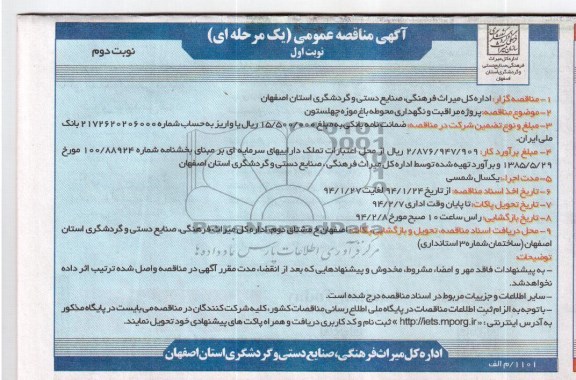 آگهی مناقصه عمومی (یک مرحله ای)
نوبت اول
نوبت دوم
اداره کل میراث
فرهنگی، صنایع دستی
و گردشگری استان
اصفهان
۱- مناقصه گزار: اداره کل میراث فرهنگی، صنایع دستی و گردشگری استان اصفهان
۲- موضوع مناقصه: پروژه مراقبت و نگهداری محوطه باغ موزه چهلستون
۳- مبلغ و نوع تضمین شرکت در مناقصه: ضمانت نامه بانکی به مبلغ ۱۵/۵۰۰/۰۰۰ ریال یا واریز به حساب شماره ۲۱۷۲۶۲۰۲۰۶۰۰۰ بانک
ملی ایران.
۴- مبلغ برآورد کار: ۲/۸۷۶/۹۴۷/۹۰۹ ریال از محل اعتبارات تملک دارایی‌های سرمایه ای بر مبنای بخشنامه شماره ۱۰۰/۸۸۹۲۴ مورخ
۱۳۸۵/۵/۲۹ و برآورد تهیه شده توسط اداره کل میراث فرهنگی، صنایع دستی و گردشگری استان اصفهان
۵- مدت اجرا: یکسال شمسی
۶- تاریخ اخذ اسناد مناقصه: از تاریخ ۹۴/۱/۲۴ لغایت ۹۴/۱/۲۷
۷- تاریخ تحویل پاکات: تا پایان وقت اداری ۹۴/۲/۷
۸- تاریخ بازگشایی: راس ساعت ۱۰ صبح مورخ ۹۴/۲/۸
۹- محل دریافت اسناد مناقصه، تحویل و بازگشایی پاکات: اصفهان خ مشتاق دوم، اداره کل میراث فرهنگی، صنایع دستی و گردشگری استان
اصفهان (ساختمان شماره ۳ استانداری)
توضیحات
- به پیشنهادات فاقد مهر و امضا، مشروط، مخدوش و پیشنهادهایی که بعد از انقضاء مدت مقرر آگهی در مناقصه واصل شده ترتیب اثر داده
نخواهد شد.
- سایر اطلاعات و جزییات مربوط در اسناد مناقصه درج شده است.
- با توجه به الزام ثبت اطلاعات مناقصات در پایگاه ملی اطلاع رسانی مناقصات کشور، کلیه شرکت کنندگان در مناقصه می بایست در پایگاه مذکور
به آدرس اینترنتی: «http://iets.mporg.ir» ثبت نام و کد کاربری دریافت و همراه پاکت های پیشنهادی خود تحویل نمایند.
اداره کل میراث فرهنگی، صنایع دستی و گردشگری استان اصفهان
۱۱۰۱/م الف